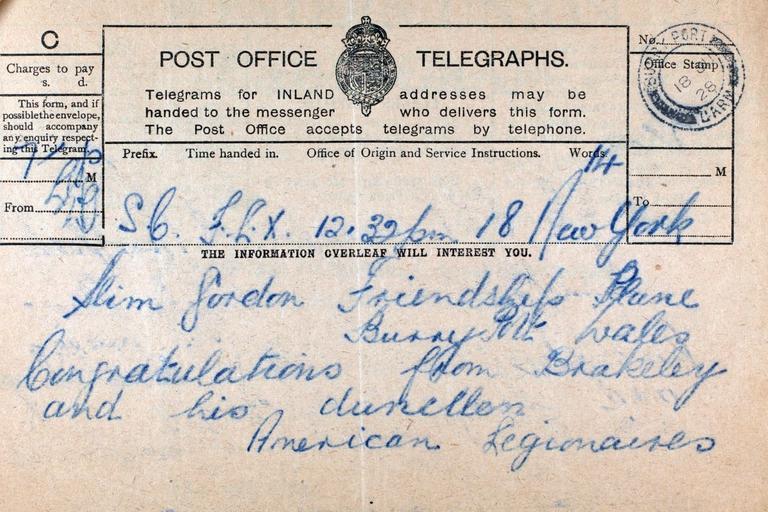 C
Charges to pay
s. d.
This form, and if
possible the envelope,
should accompany
any enquiry respect-
ing this Telegram.
M
From
POST OFFICE TELEGRAPHS.
Telegrams for INLAND addresses may be
handed to the messenger who delivers this form.
The Post Office accepts telegrams by telephone.
Prefix. Time handed in. Office of Origin and Service Instructions. Words.
14
No.
Office Stamp
PORT
18
28
CARM
M
To
12.32pm 18 New York
THE INFORMATION OVERLEAF WILL INTEREST YOU.
Slim Gordon Friendship Plane
Burry Port Wales
Congratulations from Brakeley
and his dunellen
American Legionaires